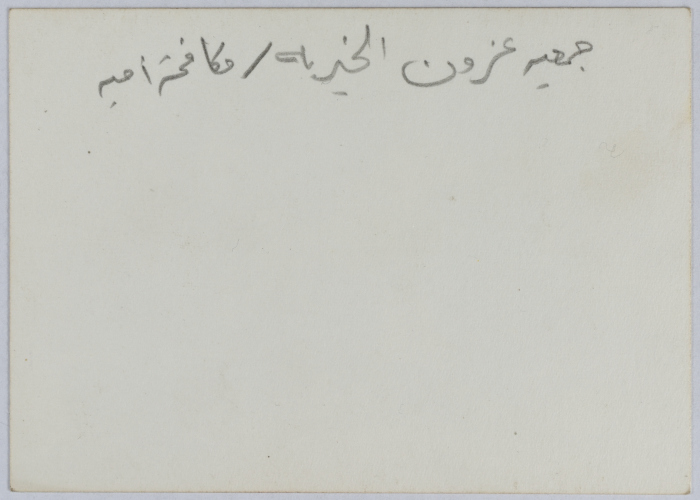 جمعيه عزون الخيريه / مكافحة أميه